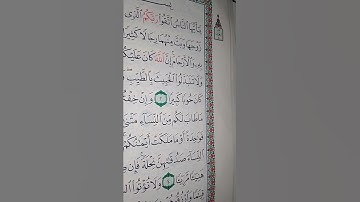 يَٰٓأَيُّهَا ٱلنَّاسُ ٱتَّقُوا۟ رَبَّكُمُ ٱلَّذِى
زَوْجَهَا وَبَثَّ مِنْهُمَا رِجَالًا كَثِيرًا
بِهِۦ وَٱلْأَرْحَامَ إِنَّ ٱللَّهَ كَانَ عَلَيْكُمْ
وَلَا تَتَبَدَّلُوا۟ ٱلْخَبِيثَ بِٱلطَّيِّبِ
كَانَ حُوبًا كَبِيرًا ٢ وَإِنْ خِفْتُمْ
مَا طَابَ لَكُم مِّنَ ٱلنِّسَآءِ مَثْنَىٰ
فَوَٰحِدَةً أَوْ مَا مَلَكَتْ أَيْمَٰنُكُمْ
ٱلنِّسَآءَ صَدُقَٰتِهِنَّ نِحْلَةً فَإِن
هَنِيٓـًٔا مَّرِيٓـًٔا ٤ وَلَا تُؤْتُوا۟